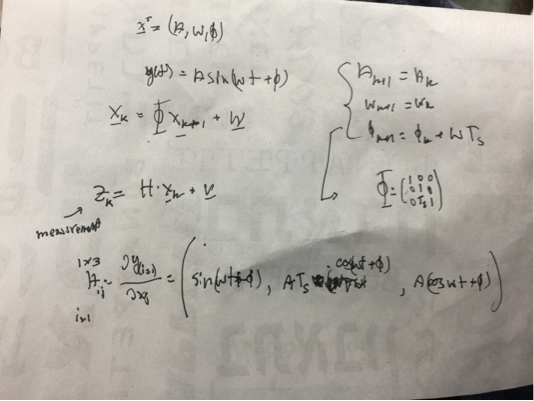 x^T = (A, w, φ)
y(t) = A sin(wt + φ)
x_k = Φ x_{k+1} + w
A_{k+1} = A_k
w_{k+1} = w_k
φ_{k+1} = φ_k + w T_s
Φ = (1 0 0
0 1 0
0 T_s 1)
z_k = H · x_k + v
measurement
1x3
H_{ij} = ∂y_{(i=1)}/∂x_j = (sin(wt+φ), A T_s cos(wt+φ), A(cos wt + φ))
i=1